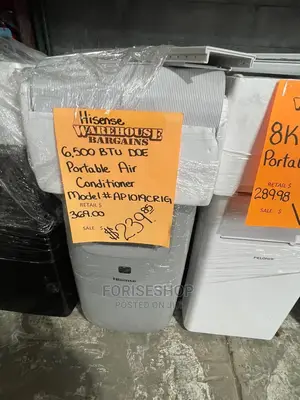 Hisense
WAREHOUSE
BARGAINS
6,500 BTU DOE
Portable Air
Conditioner
Model# AP1019CR1G
RETAIL $
369.00
SALE $
$239.99
8K
Portab
RETAIL $
289.98
SALE $
Hisense
FORISESHOP
POSTED ON